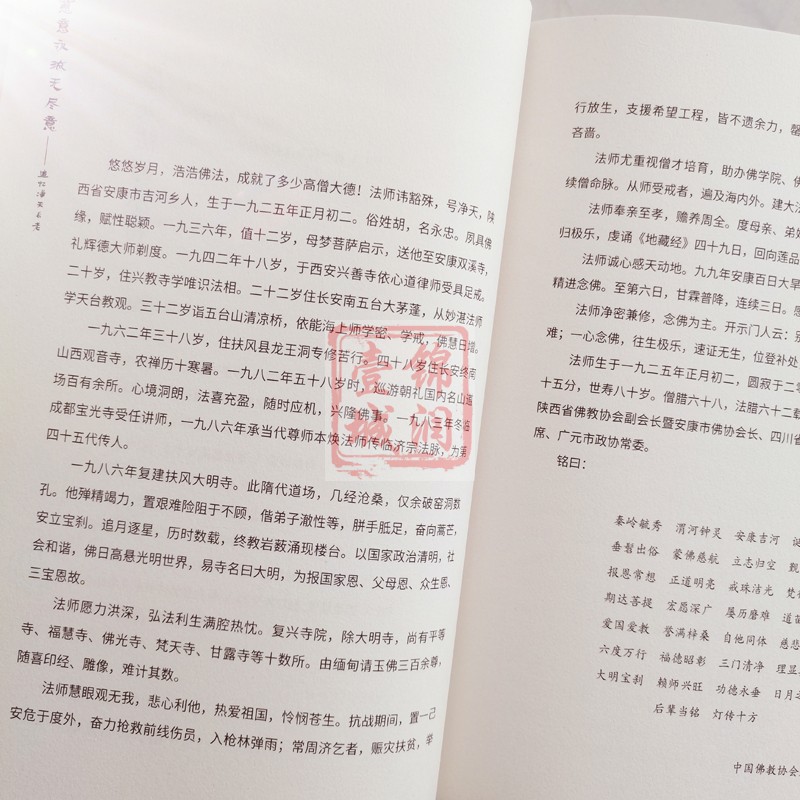 意
无尽意
悠悠岁月，浩浩佛法，成就了多少高僧大德！法师讳豁殊，号净天，陕
西省安康市吉河乡人，生于一九二五年正月初二。俗姓胡，名永忠。夙具佛
缘，赋性聪颖。一九三六年，值十二岁，母梦菩萨启示，送他至安康双溪寺，
礼辉德大师剃度。一九四二年十八岁，于西安兴善寺依心道律师受具足戒。
二十岁，住兴教寺学唯识法相。二十二岁住长安南五台大茅蓬，从妙湛法师
学天台教观。三十二岁诣五台山清凉桥，依能海上师学密、学戒，佛慧日增。
一九六二年三十八岁，住扶风县龙王洞专修苦行。四十八岁住长安终南
山西观音寺，农禅历十寒暑。一九八二年五十八岁时，巡游朝礼国内名山道
场百有余所。心境洞朗，法喜充盈，随时应机，兴隆佛事。一九八三年冬临
成都宝光寺受任讲师，一九八六年承当代尊师本焕法师传临济宗法脉，为第
四十五代传人。
一九八六年复建扶风大明寺。此隋代道场，几经沧桑，仅余破窑洞数
孔。他殚精竭力，置艰难险阻于不顾，偕弟子澈性等，胼手胝足，奋向蒿芒，
安立宝刹。追月逐星，历时数载，终教岩薮涌现楼台。以国家政治清明，社
会和谐，佛日高悬光明世界，易寺名曰大明，为报国家恩、父母恩、众生恩、
三宝恩故。
法师愿力洪深，弘法利生满腔热忱。复兴寺院，除大明寺，尚有平等
寺、福慧寺、佛光寺、梵天寺、甘露寺等十数所。由缅甸请玉佛三百余尊，
随喜印经、雕像，难计其数。
法师慧眼观无我，悲心利他，热爱祖国，怜悯苍生。抗战期间，置一己
安危于度外，奋力抢救前线伤员，入枪林弹雨；常周济乞者，赈灾扶贫，举
行放生，支援希望工程，皆不遗余力，罄
吝啬。
法师尤重视僧才培育，助办佛学院、佛
续僧命脉。从师受戒者，遍及海内外。建大法
法师奉亲至孝，赡养周全。度母亲、弟妹
归极乐，虔诵《地藏经》四十九日，回向莲品
法师诚心感天动地。九九年安康百日大旱
精进念佛。至第六日，甘霖普降，连续三日。感
法师净密兼修，念佛为主。开示门人云：别
难；一心念佛，往生极乐，速证无生，位登补处
法师生于一九二五年正月初二，圆寂于二零
十五分，世寿八十岁。僧腊六十八，法腊六十二载
陕西省佛教协会副会长暨安康市佛协会长、四川省
席、广元市政协常委。
铭曰：
秦岭毓秀 渭河钟灵 安康吉河 诞
垂髫出俗 蒙佛慈航 立志归空
报恩常想 正道明亮 戒珠洁光 梵
期达菩提 宏愿深广 屡历磨难 道苗
爱国爱教 誉满梓桑 自他同体 慈悲
六度万行 福德昭彰 三门清净 理显
大明宝刹 赖师兴旺 功德永垂 日月
后辈当铭 灯传十方
中国佛教协会
锦润
壹城